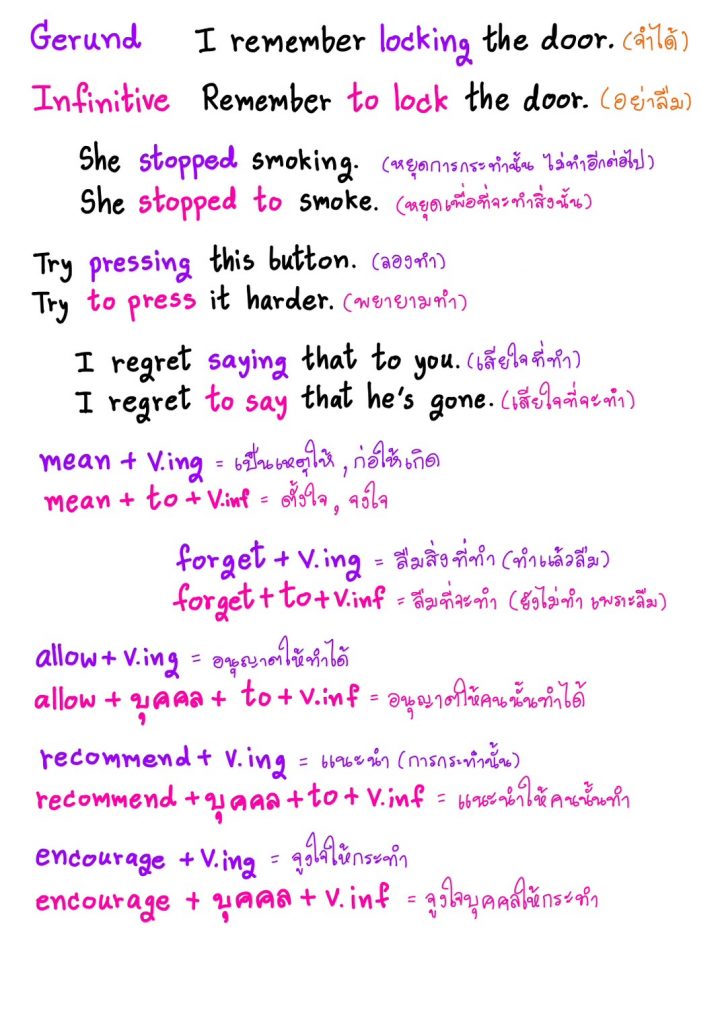 Gerund I remember locking the door. (จำได้)
Infinitive Remember to lock the door. (อย่าลืม)
She stopped smoking. (หยุดการกระทำนั้น ไม่ทำอีกต่อไป)
She stopped to smoke. (หยุดเพื่อที่จะทำสิ่งนั้น)
Try pressing this button. (ลองทำ)
Try to press it harder. (พยายามทำ)
I regret saying that to you. (เสียใจที่ทำ)
I regret to say that he's gone. (เสียใจที่จะทำ)
mean + v.ing = เป็นเหตุให้ , ก่อให้เกิด
mean + to + v.inf = ตั้งใจ , จงใจ
forget + v.ing = ลืมสิ่งที่ทำ (ทำแล้วลืม)
forget + to + v.inf = ลืมที่จะทำ (ยังไม่ทำ เพราะลืม)
allow + v.ing = อนุญาตให้ทำได้
allow + บุคคล + to + v.inf = อนุญาตให้คนนั้นทำได้
recommend + v.ing = แนะนำ (การกระทำนั้น)
recommend + บุคคล + to + v.inf = แนะนำให้คนนั้นทำ
encourage + v.ing = จูงใจให้กระทำ
encourage + บุคคล + v.inf = จูงใจบุคคลให้กระทำ